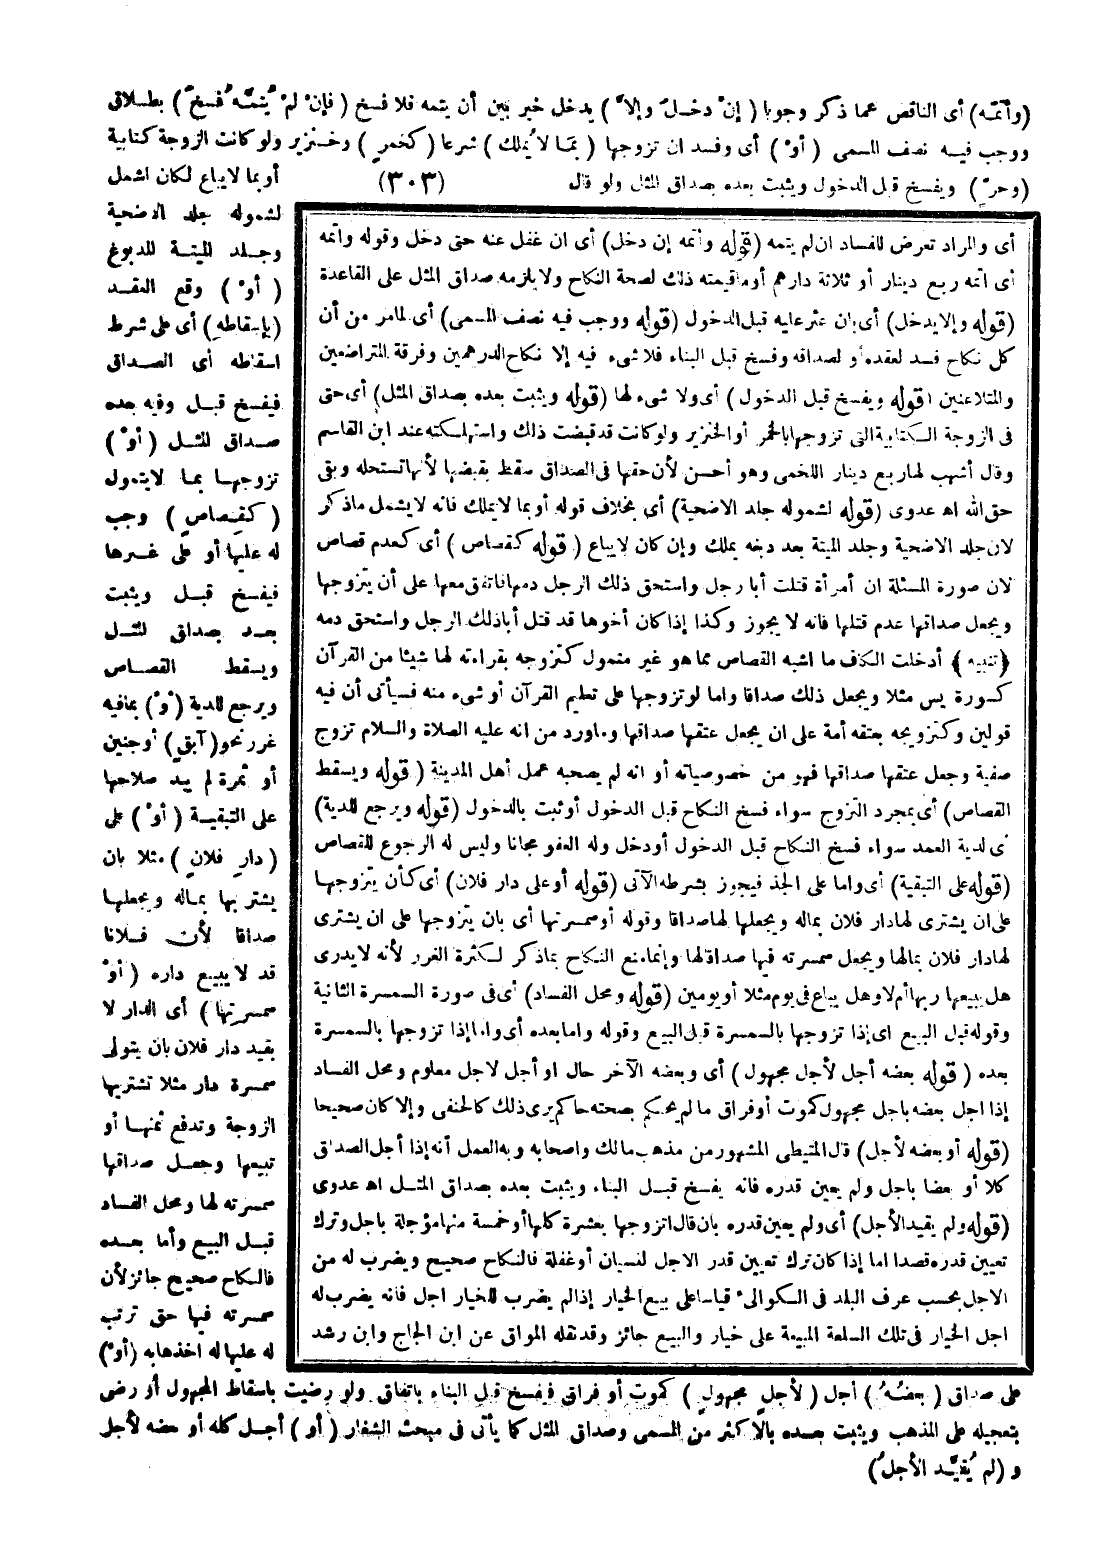 (وأتمّه) أى الناقص عما ذكر وجوبا ( إنْ دخلَ وإلاّ ) يدخل خير بين أن يتمه فلا فسخ ( فإنْ لمْ يُتمَّه فُسخَ ) بطلاق
ووجب فيه نصف المسمى ( أوْ ) أى وفسد ان تزوجها ( بمَا لا يُملك ) شرعا ( كخمرٍ ) وخنزير ولو كانت الزوجة كتابية
(وحرٍّ) ويفسخ قبل الدخول ويثبت بعده بصداق المثل ولو قال
(٣٠٣)
أو بما لا يباع لكان اشمل
لشموله جلد الاضحية
وجلد الميتة المدبوغ
( أوْ ) وقع العقد
(بإسقاطهِ) أى على شرط
اسقاطه أى الصداق
فيفسخ قبل وفيه بعده
صداق المثل ( أوْ )
تزوجها بما لا يتمول
( كقصاصٍ ) وجب
له عليها أو على غيرها
فيفسخ قبل ويثبت
بعد بصداق المثل
ويسقط القصاص
ويرجع للدية (أوْ) بما فيه
غرر نحو (آبقٍ) أو جنين
أو ثمرة لم يبد صلاحها
على التبقية ( أوْ ) على
( دارِ فلانٍ ) مثلا بان
يشتريها بماله ويجعلها
صداقا لأن فلانا
قد لا يبيع داره ( أوْ
سمسرتها ) أى الدار لا
بقيد دار فلان بان يتولى
سمسرة دار مثلا تشتريها
الزوجة وتدفع ثمنها أو
تبيعها وجعل صداقها
سمسرته لها ومحل الفساد
قبل البيع وأما بعده
فالنكاح صحيح جائز لأن
سمسرته فيها حق ترتب
له عليها له اخذها به (أوْ)
أى والمراد تعرض للفساد ان لم يتمه (قوله وأتمه إن دخل) أى ان غفل عنه حتى دخل وقوله وأتمه
أى اتمه ربع دينار أو ثلاثة دارهم أو ما قيمته ذلك لصحة النكاح ولا يلزمه صداق المثل على القاعدة
(قوله وإلا يدخل) أى بان عثر عليه قبل الدخول (قوله ووجب فيه نصف المسمى) أى لما مر من أن
كل نكاح فسد لعقده أو لصداقه وفسخ قبل البناء فلا شىء فيه إلا نكاح الدرهمين وفرقة المتراضعين
والمتلاعنين (قوله ويفسخ قبل الدخول ) أى ولا شىء لها (قوله ويثبت بعده بصداق المثل) أى حتى
فى الزوجة الكتابية التى تزوجها بالخمر أو الخنزير ولو كانت قد قبضت ذلك واستهلكته عند ابن القاسم
وقال أشهب لها ربع دينار اللخمى وهو أحسن لأن حقها فى الصداق سقط بقبضها لأنها تستحله وبقى
حق الله اه عدوى (قوله لشموله جلد الاضحية) أى بخلاف قوله أو بما لا يملك فانه لا يشمل ما ذكر
لان جلد الاضحية وجلد الميتة بعد دبغه يملك وإن كان لا يباع ( قوله كقصاص ) أى كعدم قصاص
لان صورة المسئلة ان أمرأة قتلت أبا رجل واستحق ذلك الرجل دمها فاتفق معها على أن يتزوجها
ويجعل صداقها عدم قتلها فانه لا يجوز وكذا إذا كان أخوها قد قتل أبا ذلك الرجل واستحق دمه
﴿تنبيه﴾ أدخلت الكاف ما اشبه القصاص مما هو غير متمول كتزوجه بقراءته لها شيئا من القرآن
كسورة يس مثلا ويجعل ذلك صداقا واما لو تزوجها على تعليم القرآن أو شىء منه فسيأتى أن فيه
قولين وكتزويجه بعتقه أمة على ان يجعل عتقها صداقها وماورد من انه عليه الصلاة والسلام تزوج
صفية وجعل عتقها صداقها فهو من خصوصياته أو انه لم يصحبه عمل أهل المدينة ( قوله ويسقط
القصاص ) أى بمجرد التزوج سواء فسخ النكاح قبل الدخول أو ثبت بالدخول (قوله ويرجع للدية)
أى لدية العمد سواء فسخ النكاح قبل الدخول أو دخل وله العفو مجانا وليس له الرجوع للقصاص
(قوله على التبقية) أى واما على الجذ فيجوز بشرطه الآتى (قوله أو على دار فلان) أى كأن يتزوجها
على ان يشترى لها دار فلان بماله ويجعلها لها صداقا وقوله أو سمسرتها أى بان يتزوجها على ان يشترى
لها دار فلان بمالها ويجعل سمسرته فيها صداقا لها وإنما منع النكاح بما ذكر لكثرة الغرر لأنه لا يدرى
هل يبيعها ربها أم لا وهل يباع فى يوم مثلا أو يومين (قوله ومحل الفساد) أى فى صورة السمسرة الثانية
وقوله قبل البيع اى إذا تزوجها بالسمسرة قبل البيع وقوله واما بعده أى واما إذا تزوجها بالسمسرة
بعده ( قوله بعضه أجل لأجل مجهول ) أى وبعضه الآخر حال او أجل لاجل معلوم ومحل الفساد
إذا اجل بعضه باجل مجهول كموت أو فراق ما لم يحكم بصحته حاكم يرى ذلك كالحنفى وإلا كان صحيحا
(قوله أو بعضه لأجل) قال المتيطى المشهور من مذهب مالك واصحابه وبه العمل أنه إذا أجل الصداق
كلا أو بعضا باجل ولم يعين قدره فانه يفسخ قبل البناء ويثبت بعده بصداق المثل اه عدوى
(قوله ولم يقيد الأجل) أى ولم يعين قدره بان قال اتزوجها بعشرة كلها أو خمسة منها مؤجلة باجل وترك
تعيين قدره قصدا اما إذا كان ترك تعيين قدر الاجل لنسيان أو غفلة فالنكاح صحيح ويضرب له من
الاجل بحسب عرف البلد فى الكوالىء قياسا على بيع الخيار إذا لم يضرب للخيار اجل فانه يضرب له
اجل الخيار فى تلك السلعة المبيعة على خيار والبيع جائز وقد نقله المواق عن ابن الحاج وابن رشد
على صداق ( بعضُهُ ) أجل ( لأجلٍ مجهولٍ ) كموت أو فراق فيفسخ قبل البناء باتفاق ولو رضيت باسقاط المجهول أو رضى
بتعجيله على المذهب ويثبت بعده بالاكثر من المسمى وصداق المثل كما يأتى فى مبحث الشغار ( أو ) أجل كله أو بعضه لأجل
و (لم يُقيَّد الأجلُ)